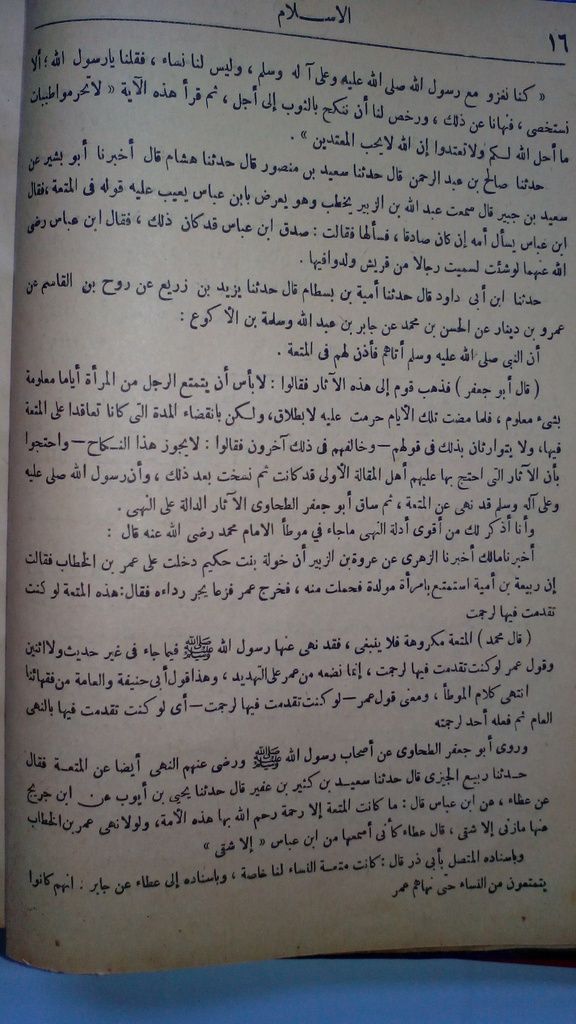 الاســـلام
١٦
« كنا نغزو مع رسول الله صلى الله عليه وعلى آله وسلم ، وليس لنا نساء ، فقلنا يارسول الله ؛ ألا
نستخصى ، فنهانا عن ذلك ، ورخص لنا أن ننكح بالثوب إلى أجل ، ثم قرأ هذه الآية « لاتحرموا طيبات
ما أحل الله لكم ولا تعتدوا إن الله لايحب المعتدين » .
حدثنا صالح بن عبد الرحمن قال حدثنا سعيد بن منصور قال حدثنا هشام قال أخبرنا أبو بشير عن
سعيد بن جبير قال سمعت عبد الله بن الزبير يخطب وهو يعرض بابن عباس يعيب عليه قوله فى المتعة ،فقال
ابن عباس يسأل أمه إن كان صادقا ، فسألها فقالت : صدق ابن عباس قد كان ذلك ، فقال ابن عباس رضى
الله عنهما لوشئت لسميت رجالا من قريش ولدوافيها .
حدثنا ابن أبى داود قال حدثنا أمية بن بسطام قال حدثنا يزيد بن زريع عن روح بن القاسم عن
عمرو بن دينار عن الحسن بن محمد عن جابر بن عبد الله وسلمة بن الأكوع :
أن النبى صلى الله عليه وسلم أتاهم فأذن لهم فى المتعة .
( قال أبو جعفر ) فذهب قوم إلى هذه الآثار فقالوا : لابأس أن يتمتع الرجل من المرأة أياما معلومة
بشىء معلوم ، فاما مضت تلك الأيام حرمت عليه لابطلاق، ولكن بانقضاء المدة التى كانا تعاقدا على المتعة
فيها، ولا يتوارثان بذلك فى قولهم – وخالفهم فى ذلك آخرون فقالوا : لايجوز هذا النـكاح – واحتجوا
بأن الآثار التى احتج بها عليهم أهل المقالة الأولى قد كانت ثم نسخت بعد ذلك ، وأن رسول الله صلى عليه
وعلى آله وسلم قد نهى عن المتعة ، ثم ساق أبو جعفر الطحاوى الآثار الدالة على النهى .
وأنا أذكر لك من أقوى أدلة النهى ماجاء في موطأ الامام محمد رضى الله عنه قال :
أخبرنا مالك أخبرنا الزهرى عن عروة بن الزبير أن خولة بنت حكيم دخلت على عمر بن الخطاب فقالت
إن ربيعة بن أمية استمتع بامرأة مولدة فحملت منه ، فخرج عمر فزعا يجر رداءه فقال: هذه المتعة لو كنت
تقدمت فيها لرجمت
( قال محمد ) المتعة مكروهة فلا ينبغى ، فقد نهى عنها رسول الله ﷺ فيما جاء فى غير حديث ولا اثنين
وقول عمر لوكنت تقدمت فيها لرجمت ، إنما نضعه من عمر على التهديد ، وهذا قول أبى حنيفة والعامة من فقهائنا
انتهى كلام الموطأ ، ومعنى قول عمر – لو كنت تقدمت فيها لرجمت – أى لو كنت تقدمت فيها بالنهى
العام ثم فعله أحد لرجمته
وروى أبو جعفر الطحاوى عن أصحاب رسول الله ﷺ ورضى عنهم النهى أيضا عن المتعـة فقال
حـدثنا ربيع الجيزى قال حدثنا سعيـد بن كثير بن عفير قال حدثنا يحيى بن أيوب عن ابن جريج
عن عطاء ، عن ابن عباس قال : ما كانت المتعة إلا رحمة رحم الله بها هذه الأمة، ولولا نهى عمر بن الخطاب
عنها مازنى إلا شتى ، قال عطاء كأنى أسمعها من ابن عباس « إلا شتى »
وباسناده المتصل بأبى ذر قال : كانت متعـة النساء لنا خاصة ، وباسناده إلى عطاء عن جابر : انهم كانوا
يتمتعون من النساء حتى نهاهم عمر